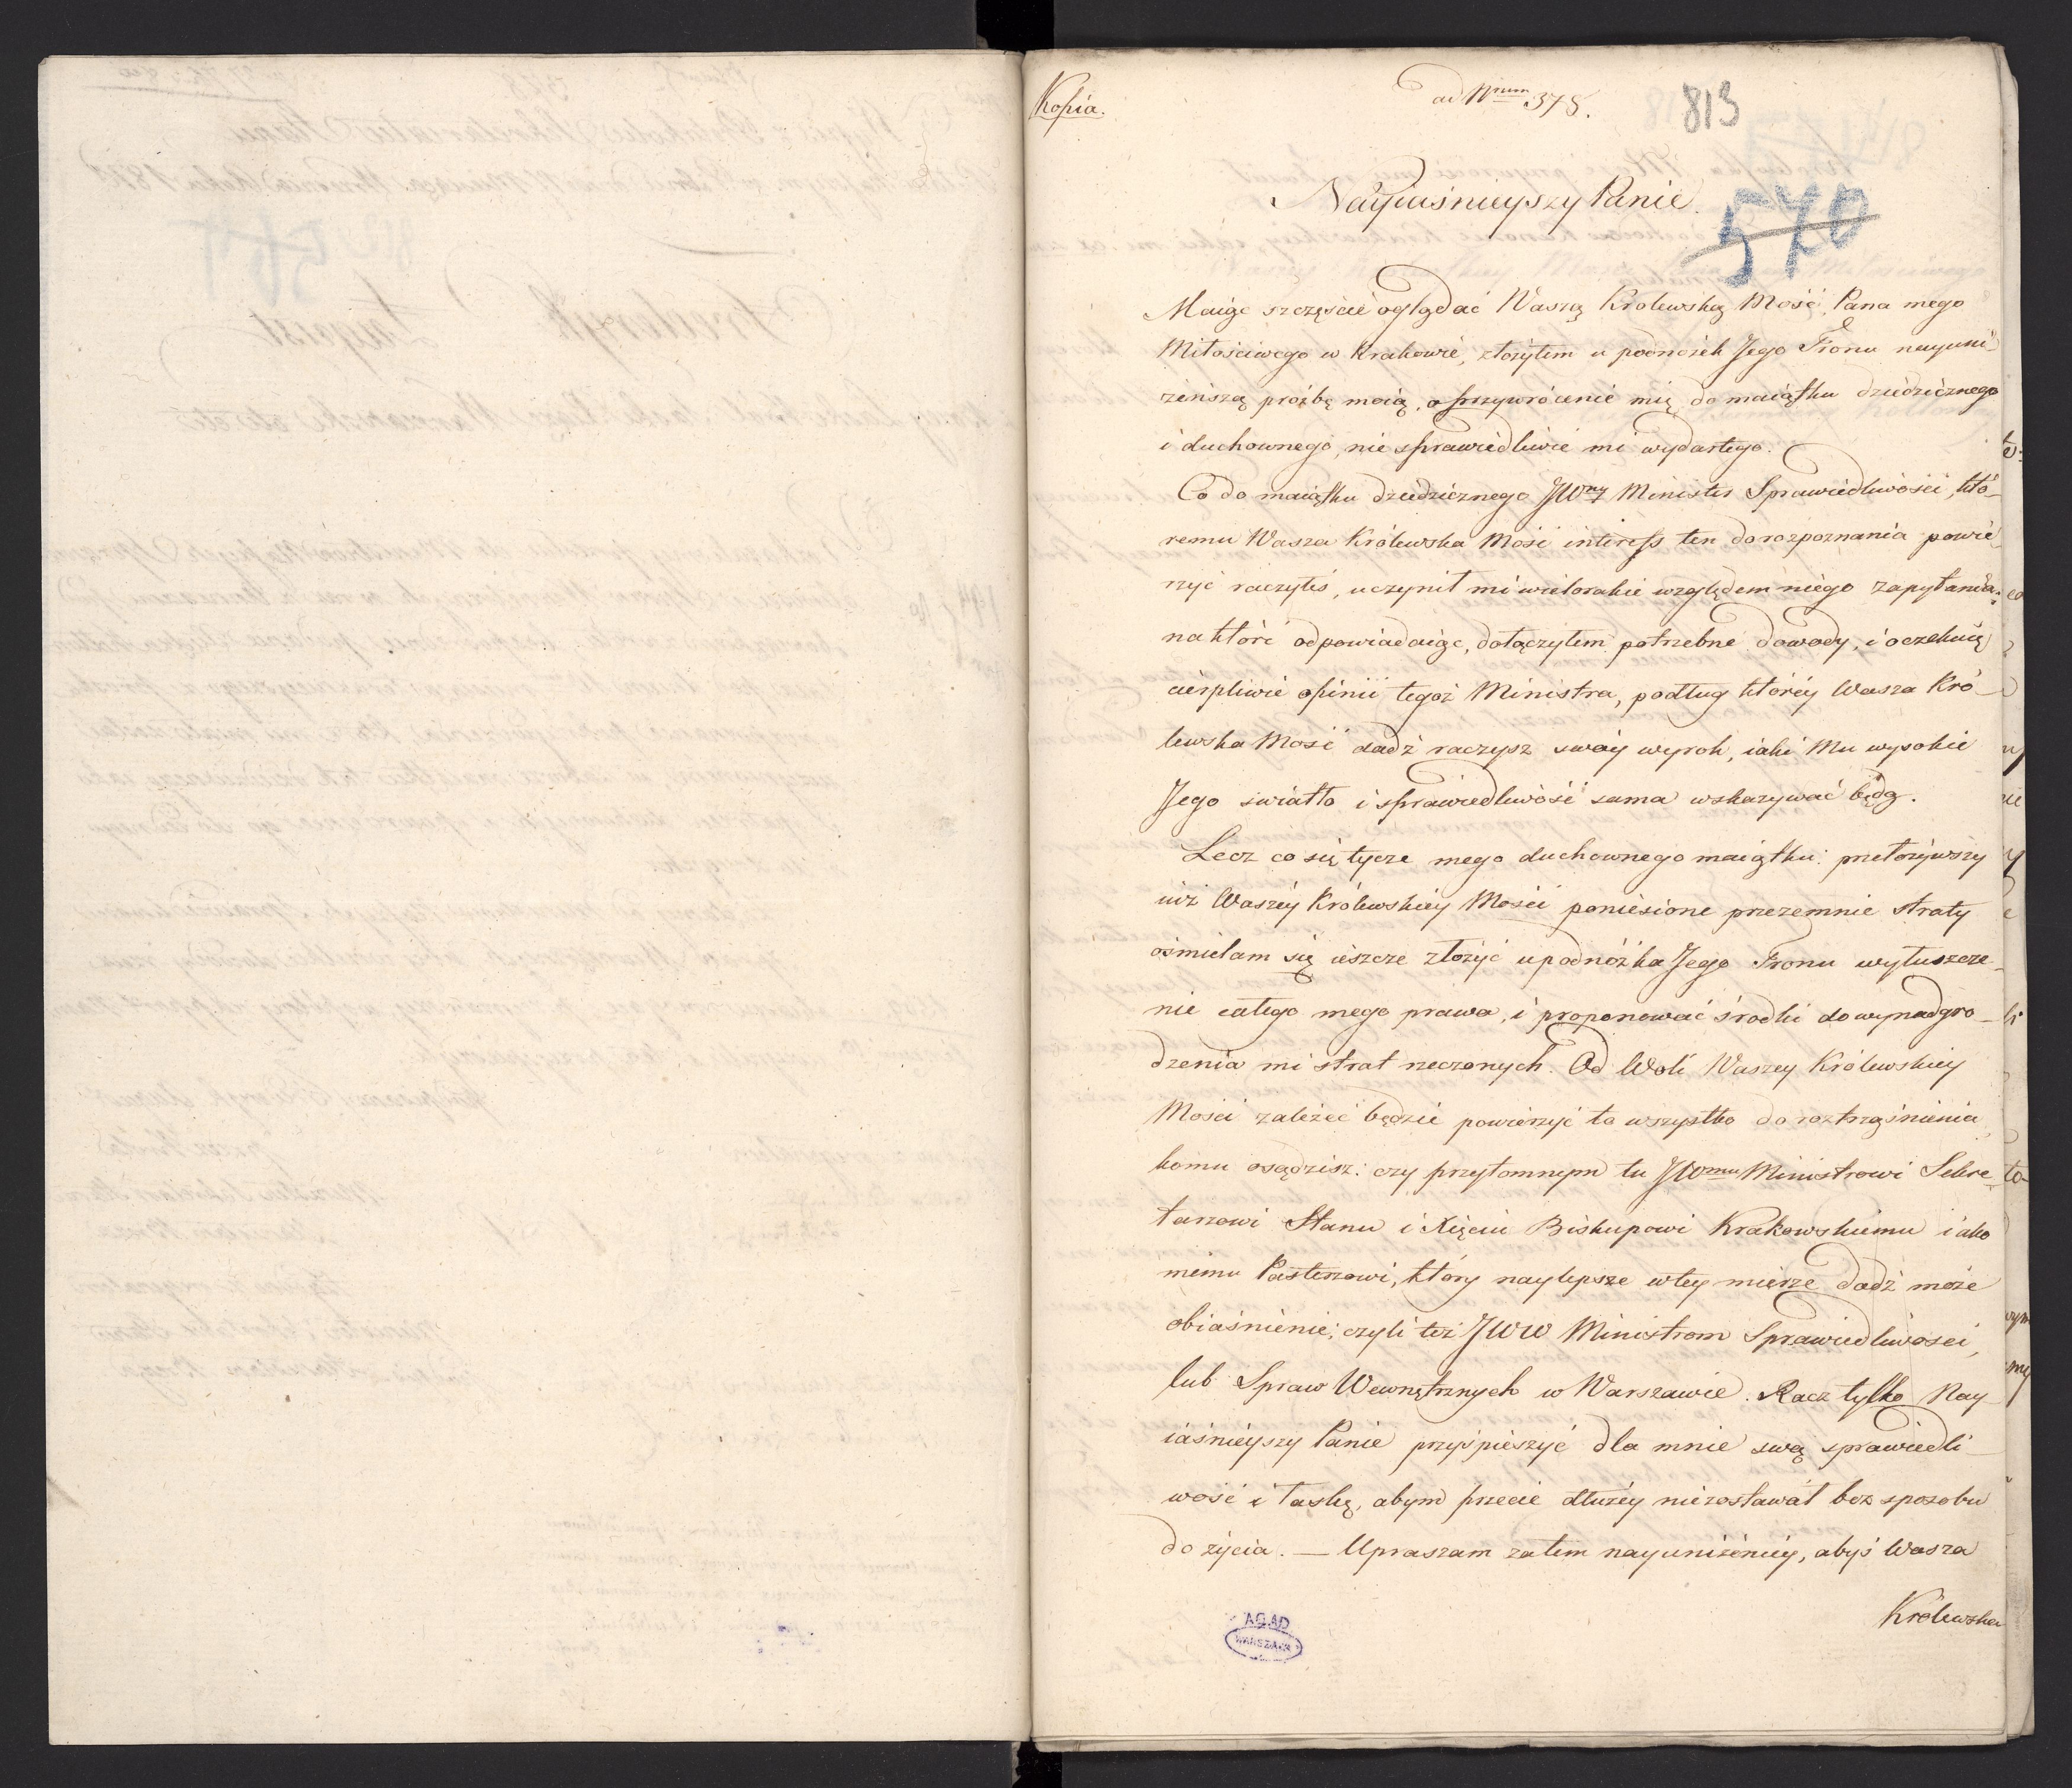 Kopia.
ad Nrum 378.
813
Nayiaśnieyszy Panie.
570
Maiąc szczęście oglądać Waszą Krolewską Mość, Pana mego
Miłościwego w Krakowie, złożyłem u podnóżek Jego Tronu nayuni-
żeńszą proźbę moią, o przywrócenie mię do maiątku dziedzicznego
i duchownego, nie sprawiedliwie mi wydartego.
Co do maiątku dziedzicznego JWny Minister Sprawiedliwości, któ-
remu Wasza Królewska Mość interess ten do rozpoznania powie-
rzyć raczyłeś, uczynił mi wielorakie względem niego zapytania;
na które odpowiadaiąc, dołączyłem potrzebne dowody, i oczekuię
cierpliwie opinii tegoż Ministra, podług któréy Wasza Kró-
lewska Mość dadź raczysz swóy wyrok, iaki Mu wysokie
Jego światło i sprawiedliwość sama wskazywać będą.
Lecz co się tycze mego duchownego maiątku: przełożywszy
iuż Waszéy Królewskiéy Mości poniesione przezemnie straty
ośmielam się ieszcze złożyć u podnóżka Jego Tronu wyłuszcze-
nie całego mego prawa, i proponować środki do wynadgro-
dzenia mi strat rzeczonych. Od Woli Waszey Królewskiéy
Mości zależeć będzie powierzyć to wszystko do roztrząśnienia
komu osądzisz: czy przytomnym tu JWmu Ministrowi Sekre-
tarzowi Stanu i Xięciu Biskupowi Krakowskiemu iako
memu Pasterzowi, który naylepsze w tey mierze dadź może
obiaśnienie; czyli też JWW Ministrom Sprawiedliwości,
lub Spraw Wewnętrznych w Warszawie. Racz tylko Nay-
iaśnieyszy Panie przyśpieszyć dla mnie swą sprawiedli-
wość i łaskę, abym przecie dłużéy niezostawał bez sposobu
do życia. — Upraszam zatem nayuniżeniéy, abyś Wasza
Królewska
AGAD
WARSZAWA